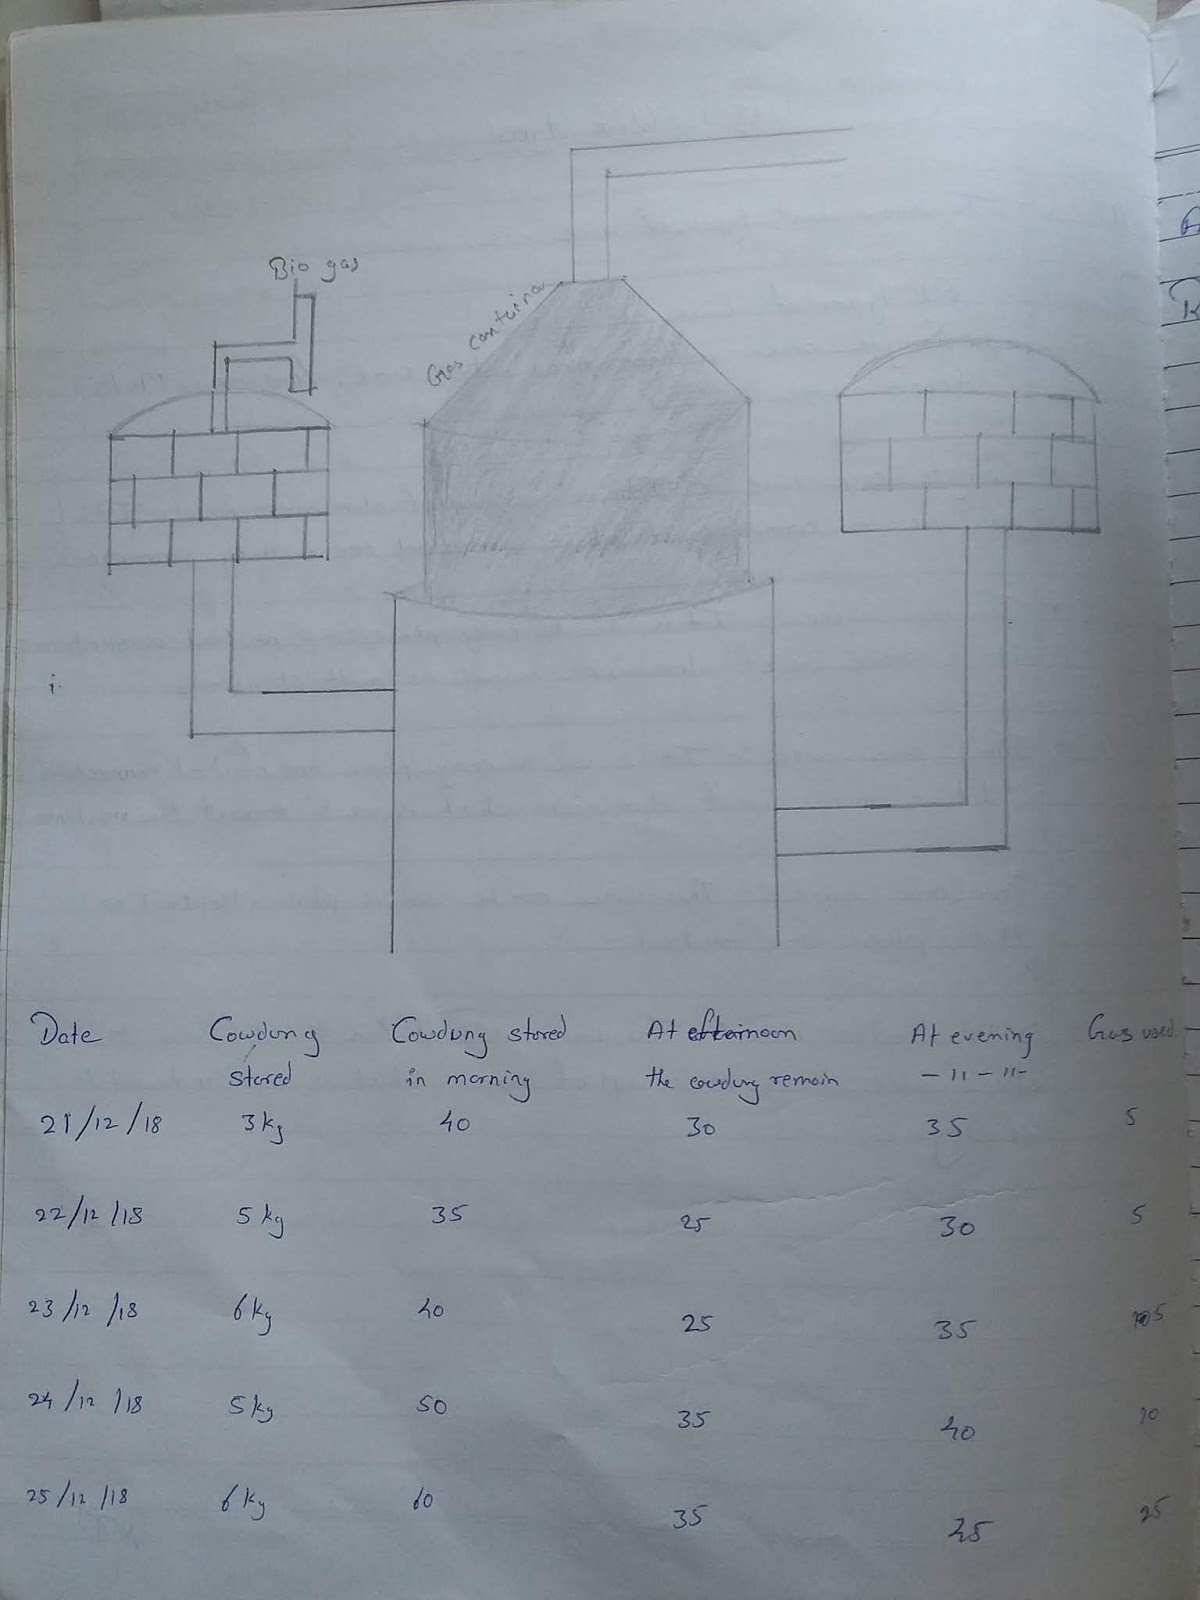 Bio gas
Gas container
i.
Date Cowdung Cowdung stored At afternoon At evening Gas used
stored in morning the cowdung remain -11-11-
21/12/18 3 kg 40 30 35 5
22/12/18 5 kg 35 25 30 5
23/12/18 6 kg 40 25 35 5
24/12/18 5 kg 50 35 40 10
25/12/18 6 kg 60 35 25